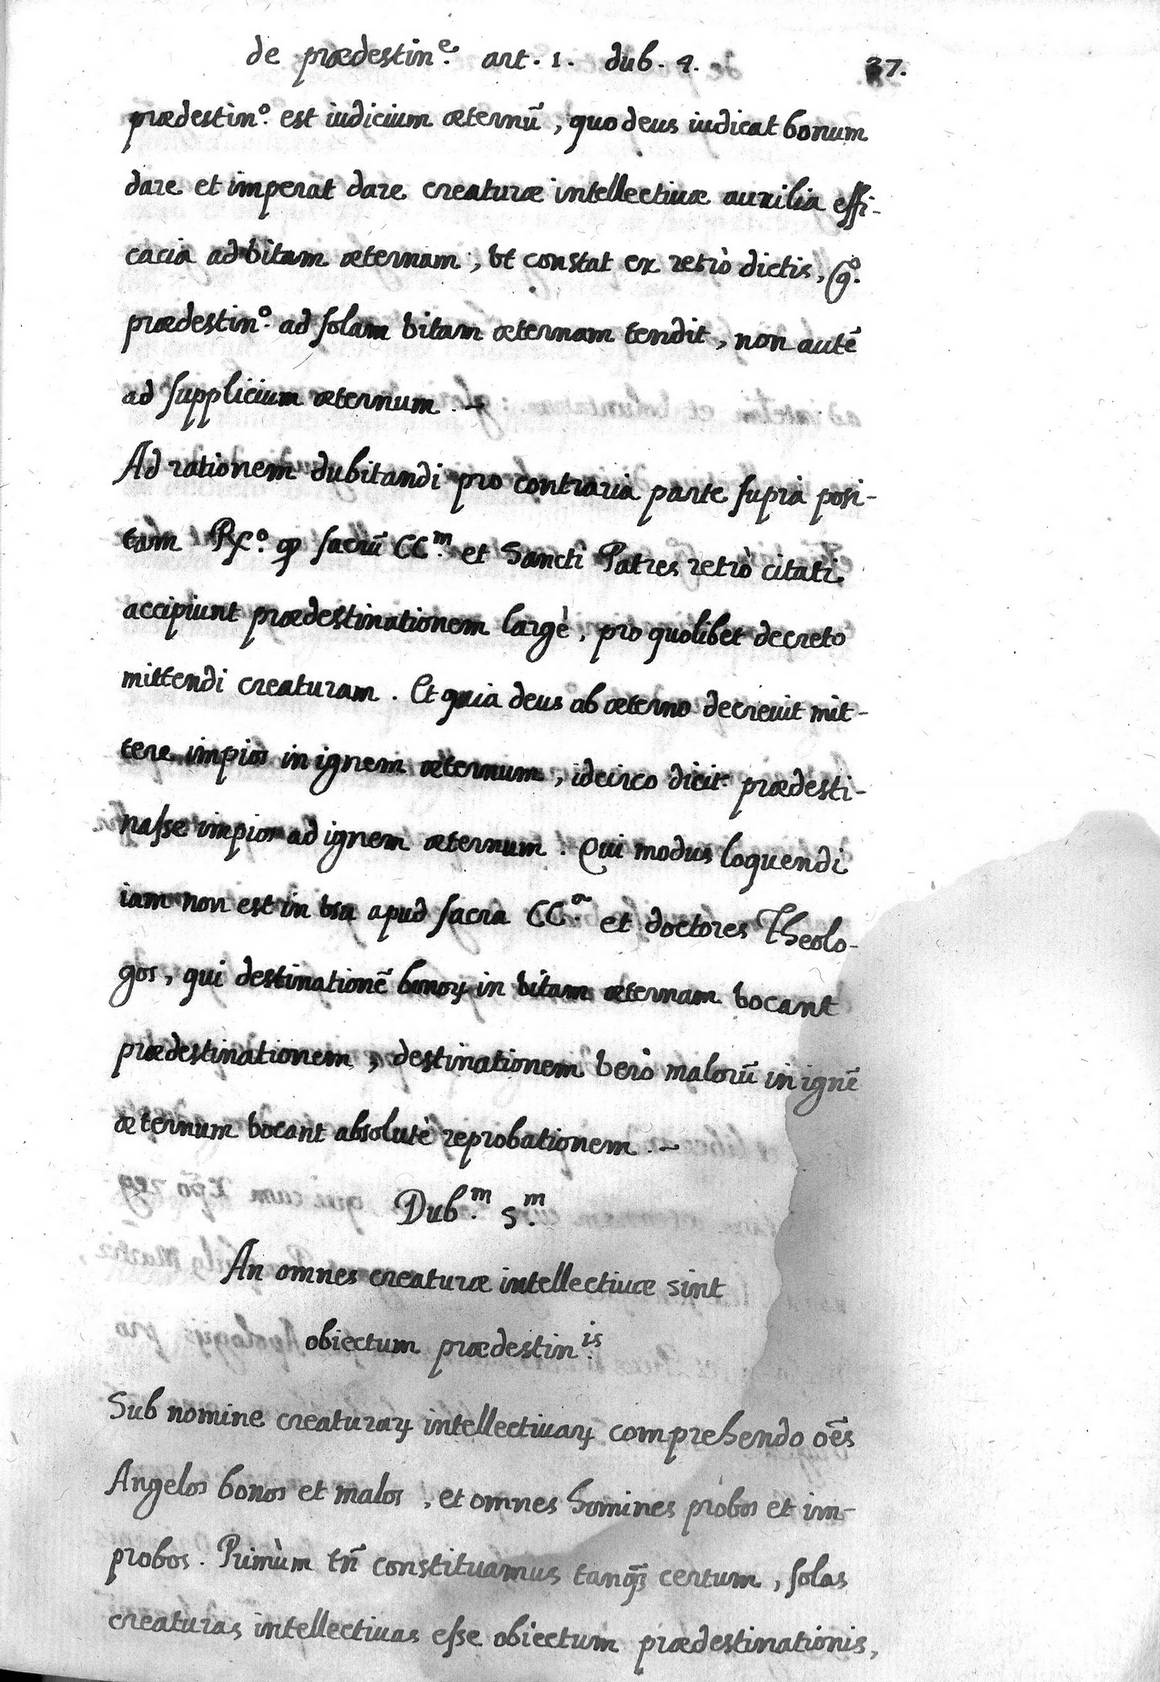 de prædestin.e art. 1. dub. 4. 37.
prædestin.o est iudicium æternũ, quo deus iudicat bonum
dare et imperat dare creaturæ intellectiuæ auxilia effi-
cacia ad vitam æternam, vt constat ex retrò dictis, g.o
prædestin.o ad solam vitam æternam tendit, non autẽ
ad supplicium æternum. -
Ad rationem dubitandi pro contraria parte suprà posi-
tam Rx.o qꝫ sacrũ CC.m et Sancti Patres retrò citati
accipiunt prædestinationem largè, pro quolibet decreto
mittendi creaturam. Et quia deus ab æterno decreuit mit-
tere impios in ignem æternum, idcirco dicitr prædesti-
nasse impios ad ignem æternum. Qui modus loquendi
iam non est in vsu apud sacra CC.a et doctores Theolo-
gos, qui destinationẽ bonoꝝ in vitam æternam vocant
prædestinationem, destinationem verò malorũ in ignẽ
æternum vocant absolutè reprobationem. -
Dub.m 5.m
An omnes creaturæ intellectiuæ sint
obiectum prædestin.is
Sub nomine creaturaꝝ intellectiuaꝝ comprehendo oẽs
Angelos bonos et malos, et omnes homines probos et im-
probos. Primùm tñ constituamus tanqꝫ certum, solas
creaturas intellectiuas esse obiectum prædestinationis,